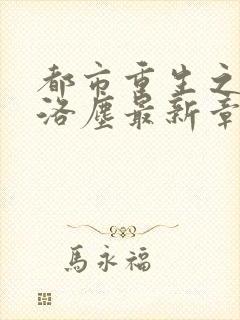 都市重生之
洛塵最新章
馬永福